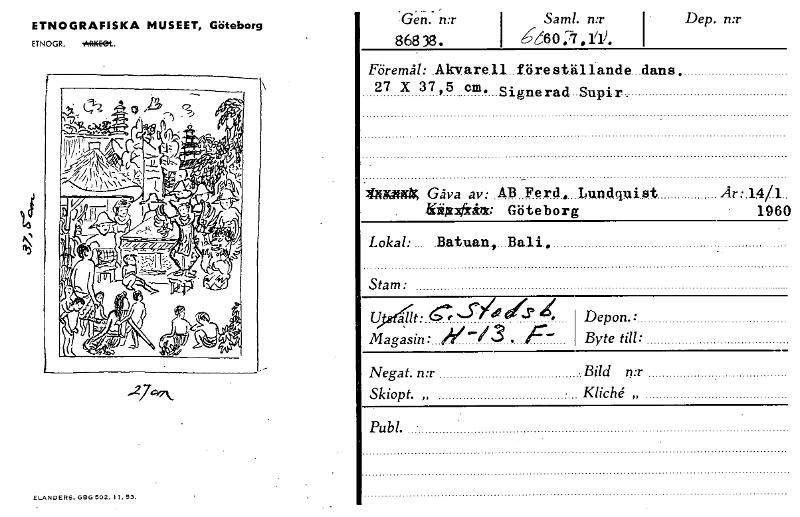 ETNOGRAFISKA MUSEET, Göteborg
ETNOGR. ARKEOL.
37,5 cm
27 cm
ELANDERS, GBG 502. 11. 53.
Gen. n:r Saml. n:r Dep. n:r
86838. 60.7.11.
Föremål: Akvarell föreställande dans.
27 X 37,5 cm. Signerad Supir.
Gåva av: AB Ferd. Lundquist År: 14/1
Göteborg 1960
Lokal: Batuan, Bali.
Stam:
Utställt: G. Stadsb. Depon.:
Magasin: H-13. F- Byte till:
Negat. n:r Bild n:r
Skiopt. „ Kliché „
Publ.